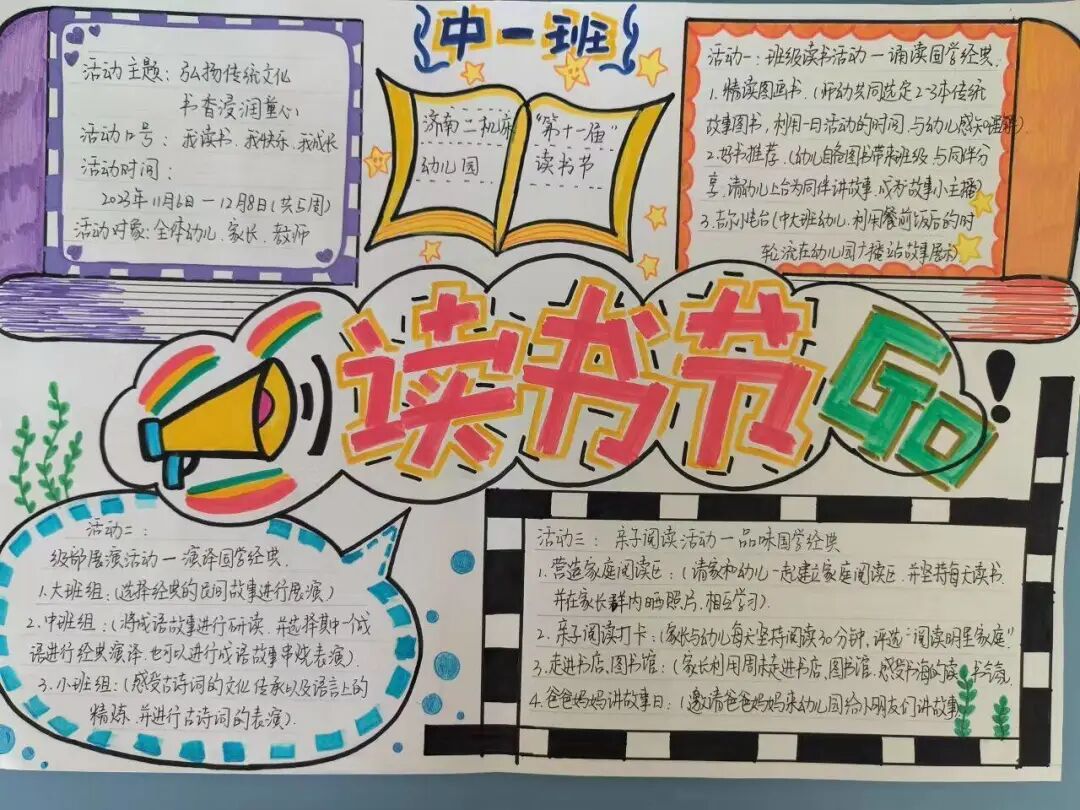 中一班
活动主题：弘扬传统文化
书香浸润童心
活动口号：我读书、我快乐、我成长
活动时间：
2023年11月6日—12月8日(共5周)
活动对象：全体幼儿、家长、教师
济南二机床
幼儿园
“第十一届”
读书节
活动一：班级读书活动—诵读国学经典.
1.精读图画书.(师幼共同选定2-3本传统
故事图书,利用一日活动的时间,与幼儿感知理解)
2.好书推荐.(幼儿自备图书带来班级与同伴分
享,请幼儿上台为同伴讲故事,成为故事小主播)
3.吉尔小电台(中大班幼儿,利用餐前饭后的时
轮流在幼儿园广播站故事展示)
读书节GO!
活动二：
级部展演活动—演译国学经典.
1.大班组：(选择经典的民间故事进行展演)
2.中班组：(将成语故事进行研读,并选择其中一个成
语进行经典演译,也可以进行成语故事串烧表演).
3.小班组：(感受古诗词的文化传承以及语言上的
精炼,并进行古诗词的表演).
活动三：亲子阅读活动—品味国学经典
1.营造家庭阅读区：(请家和幼儿一起建立家庭阅读区,并坚持每天读书.
并在家长群内晒照片,相互学习).
2.亲子阅读打卡：(家长与幼儿每天坚持阅读30分钟,评选“阅读明星家庭”
3.走进书店,图书馆：(家长利用周末走进书店,图书馆.感受书海的读书气氛.
4.爸爸妈妈讲故事日：(邀请爸爸妈妈来幼儿园给小朋友们讲故事)